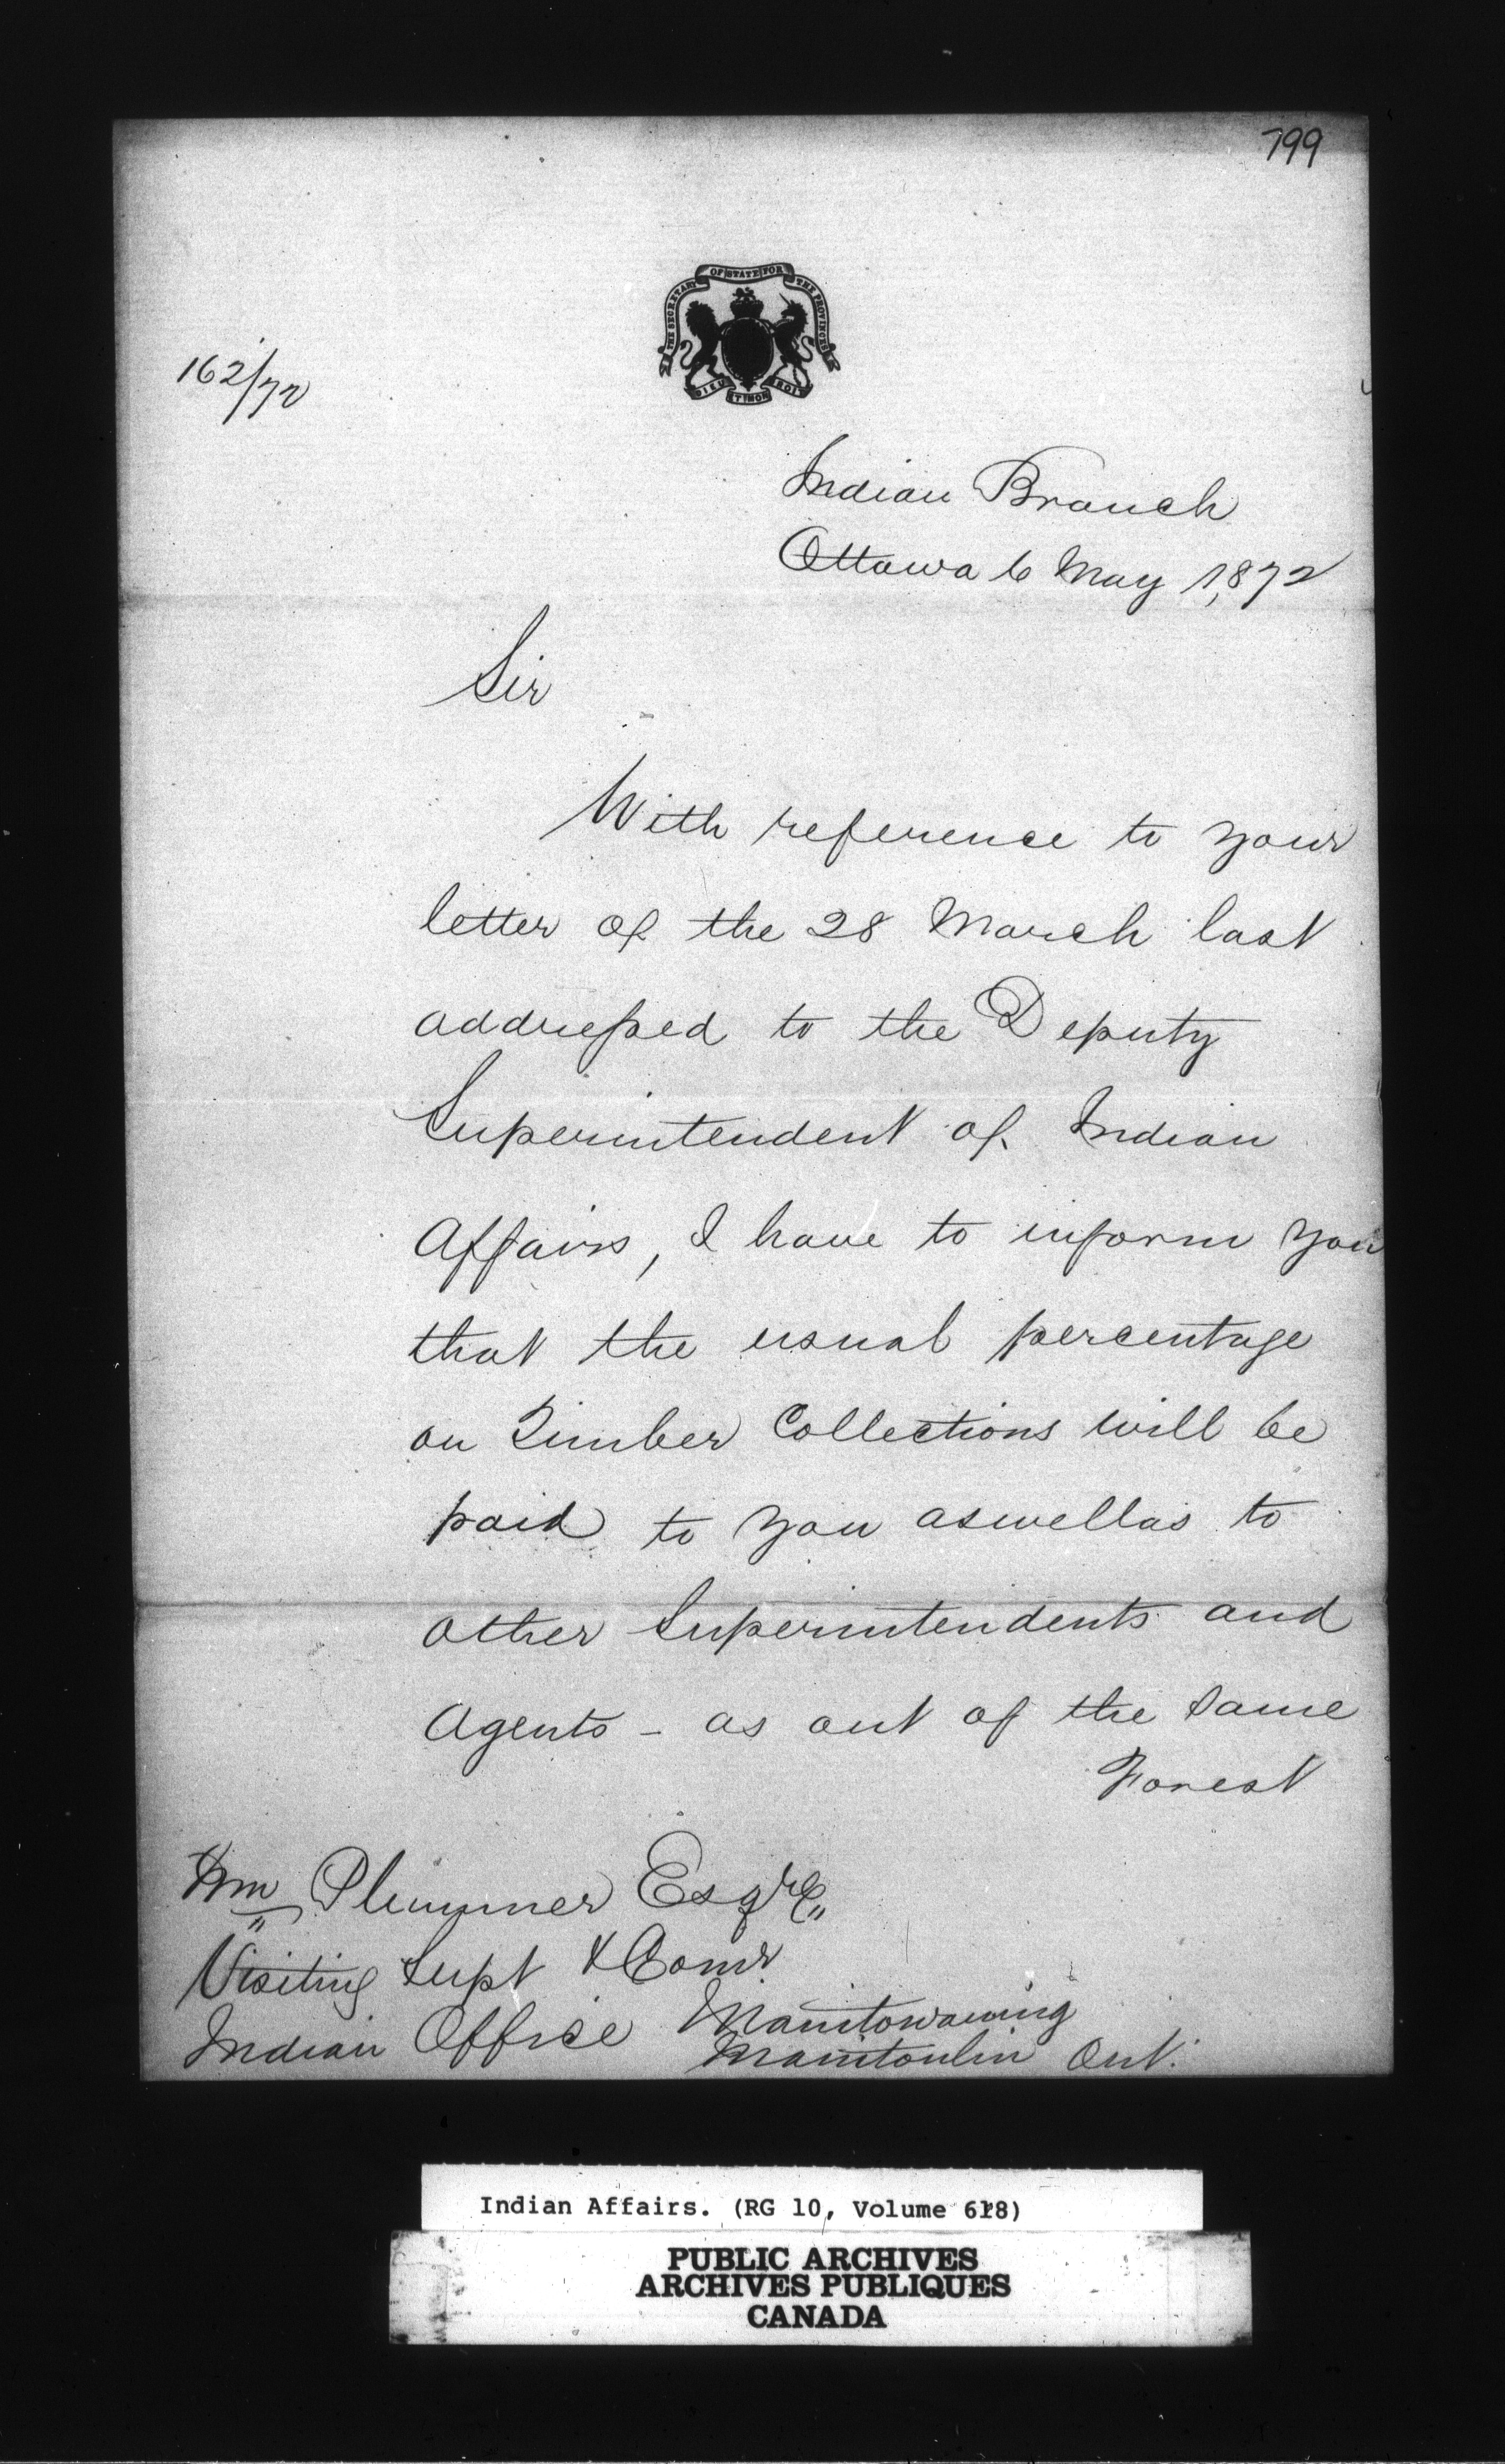 799
THE SECRETARY OF STATE FOR THE PROVINCES
DIEU ET MON DROIT
162/72
Indian Branch
Ottawa 6 May 1,872
Sir
With reference to your
letter of the 28 March last
addressed to the Deputy
Superintendent of Indian
Affairs, I have to inform you
that the usual percentage
on Timber Collections will be
paid to you aswellas to
other Superintendents and
Agents - as out of the same
Forest
Wm Plummer Esqre
Visiting Supt & Comr
Indian Office Manitowaning
Manitoulin Ont.
Indian Affairs. (RG 10, Volume 618)
PUBLIC ARCHIVES
ARCHIVES PUBLIQUES
CANADA